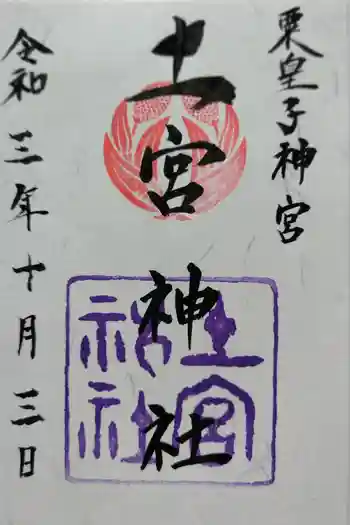 粟皇子神宮
土宮神社
土宮
神社
令和三年十月三日